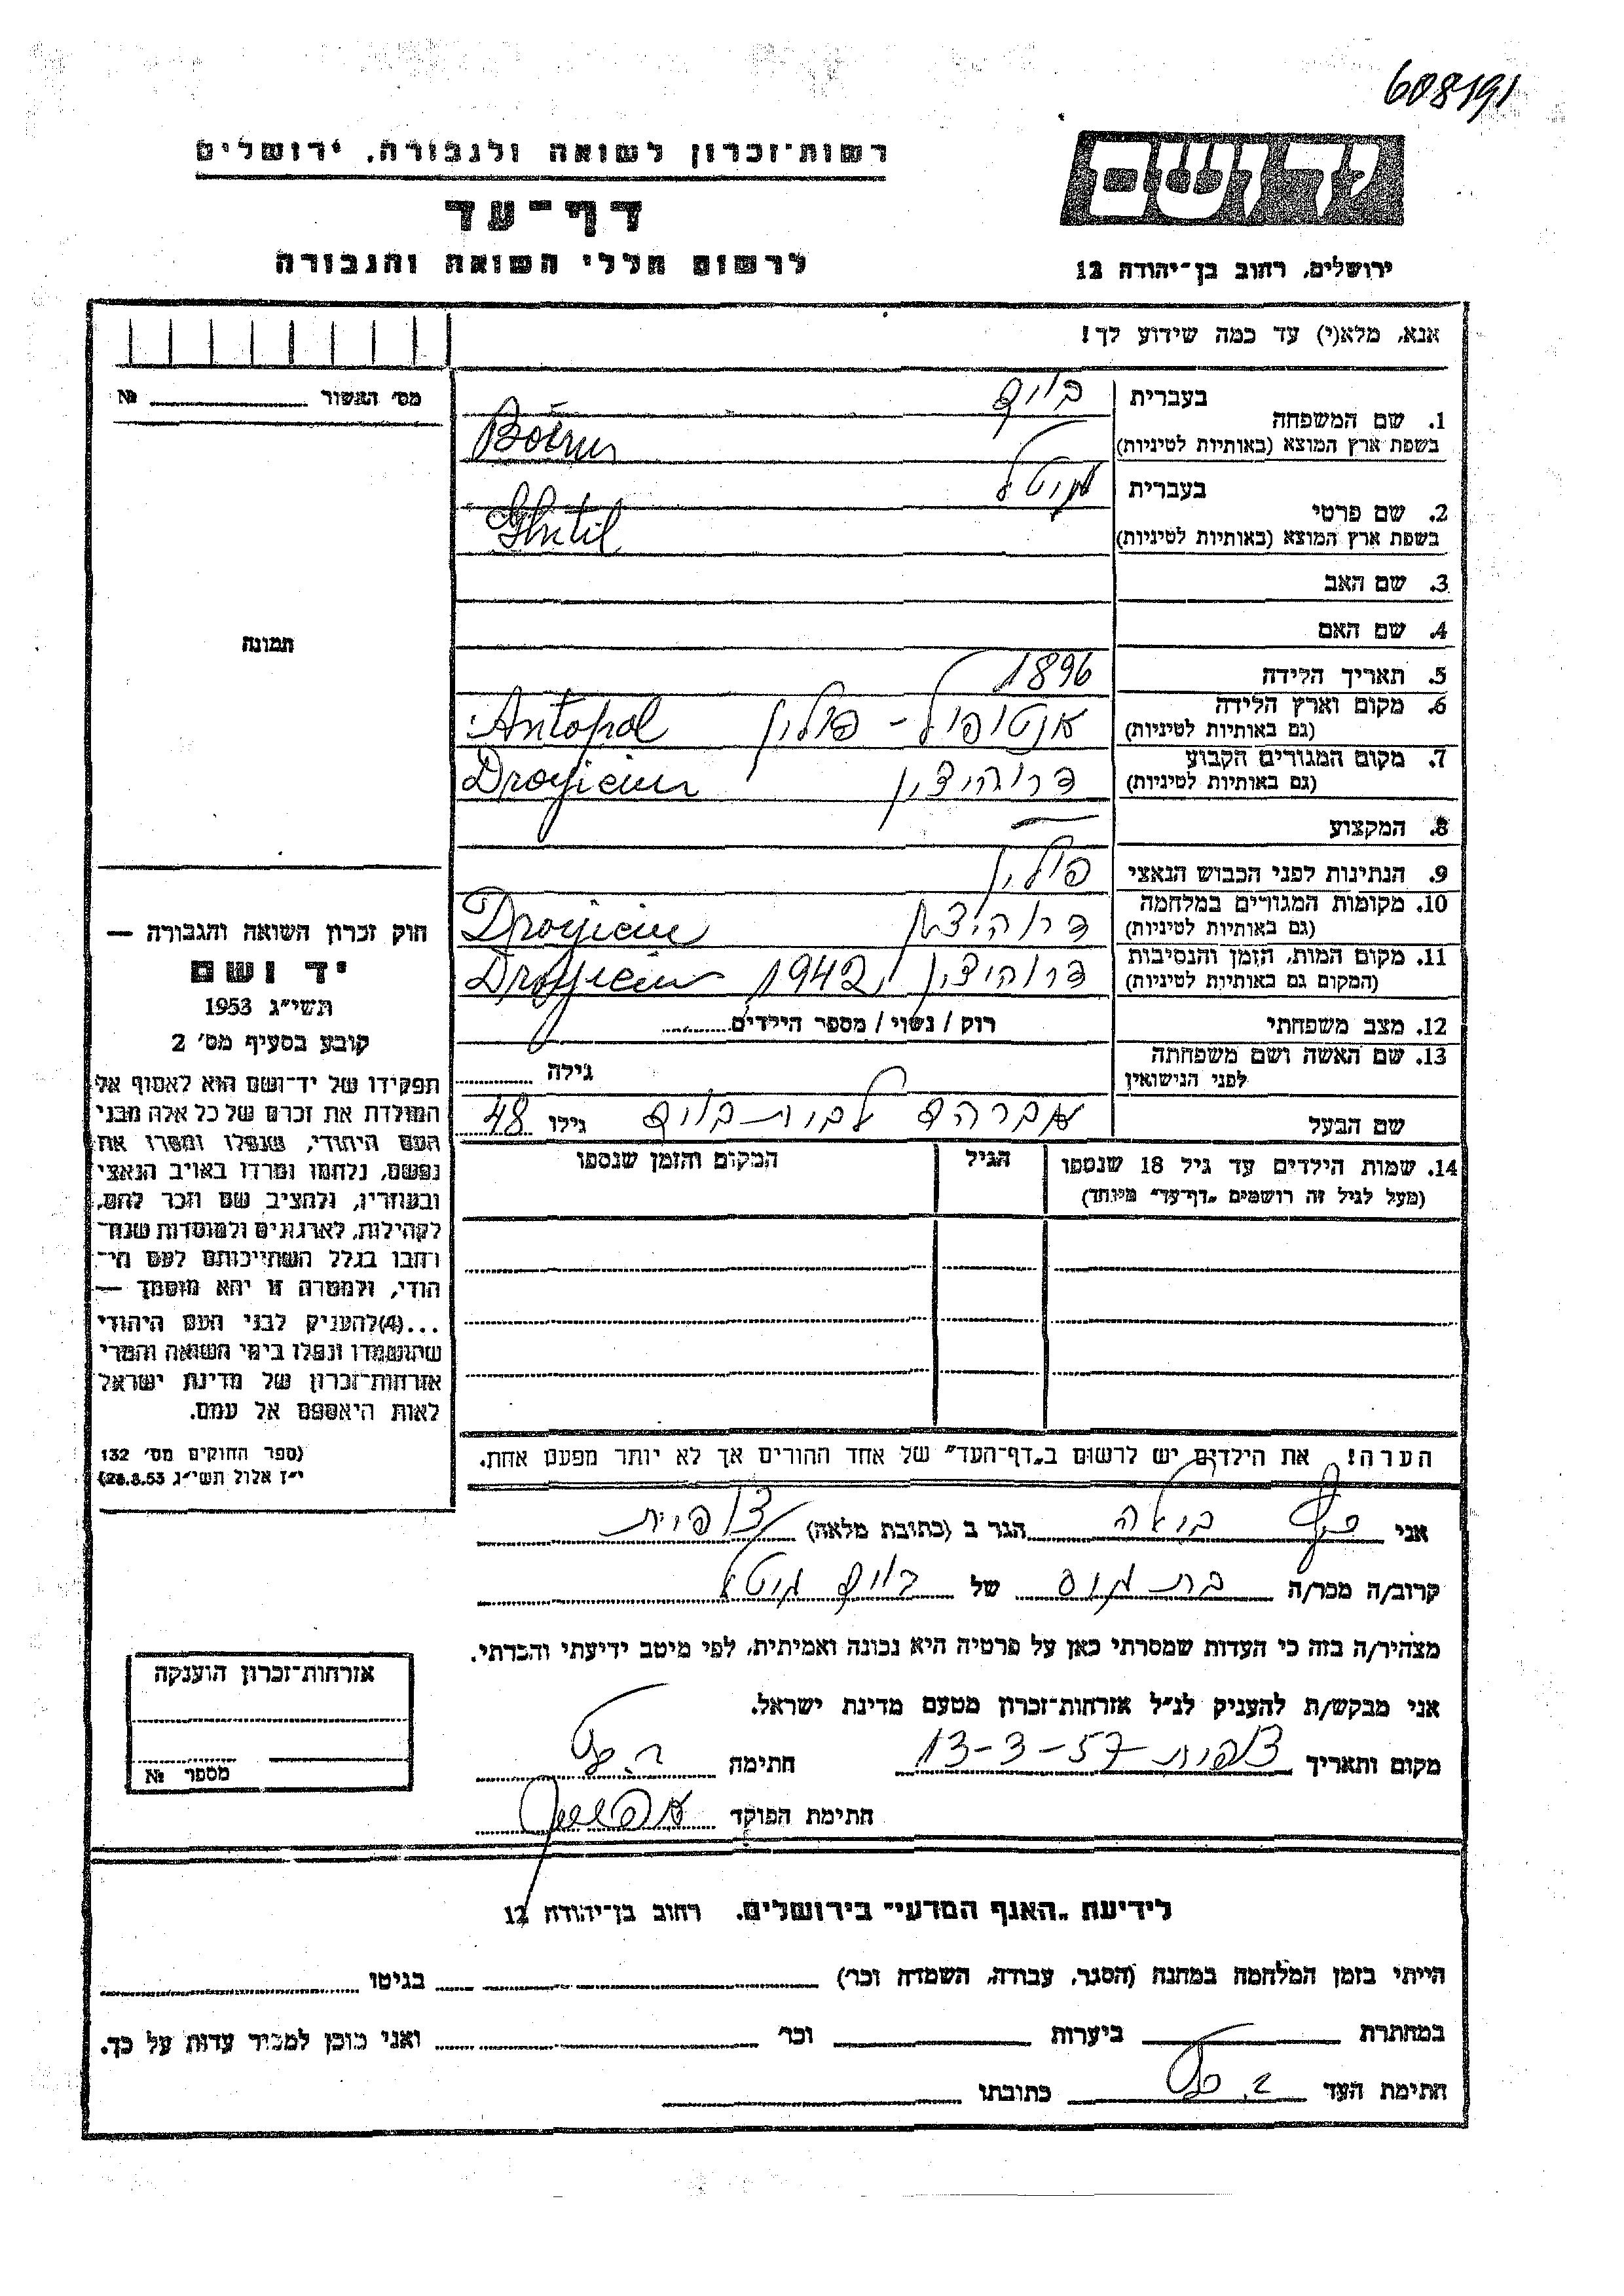 608191
רשות-זכרון לשואה ולגבורה, ירושלים
דף-עד
לרשום חללי השואה והגבורה
ידושם
ירושלים, רחוב בן-יהודה 12
אנא, מלא(י) עד כמה שידוע לך!
מס' האשור № 
תמונה
חוק זכרון השואה והגבורה —
יד ושם
תשי"ג 1953
קובע בסעיף מס' 2
תפקידו של יד-ושם הוא לאסוף אל
המולדת את זכרם של כל אלה מבני
העם היהודי, שנפלו ומסרו את
נפשם, נלחמו ומרדו באויב הנאצי
ובעוזריו, ולהציב שם וזכר להם,
לקהילות, לארגונים ולמוסדות שנח-
רחבו בגלל השתייכותם לעם הי-
הודי, ולמטרה זו יהא מוסמך —
...(4)להעניק לבני העם היהודי
שהושמדו ונפלו בימי השואה והמרי
אזרחות-זכרון של מדינת ישראל
לאות היאספם אל עמם.
(ספר החוקים מס' 132
י"ז אלול תשי"ג 28.8.53)
1. שם המשפחה
בעברית
בשפת ארץ המוצא (באותיות לטיניות)
2. שם פרטי
בעברית
בשפת ארץ המוצא (באותיות לטיניות)
3. שם האב
4. שם האם
5. תאריך הלידה 1896
6. מקום וארץ הלידה אנטופול - פולין Antopol
(גם באותיות לטיניות)
7. מקום המגורים הקבוע דרוהיצין
(גם באותיות לטיניות)
8. המקצוע —
9. הנתינות לפני הכבוש הנאצי פולין
10. מקומות המגורים במלחמה דרוהיצין
(גם באותיות לטיניות)
11. מקום המות, הזמן והנסיבות דרוהיצין 1942
(המקום גם באותיות לטיניות)
12. מצב משפחתי רוק / נשוי / מספר הילדים
13. שם האשה ושם משפחתה
לפני הנישואין גילה
שם הבעל אברהם גילו 48
14. שמות הילדים עד גיל 18 שנספו הגיל המקום והזמן שנספו
(מעל לגיל זה רושמים „דף-עד" מיוחד)
הערה! את הילדים יש לרשום ב„דף-העד" של אחד ההורים אך לא יותר מפעם אחת.
אני הגר ב (כתובת מלאה)
קרוב/ה מכר/ה בת של
מצהיר/ה בזה כי העדות שמסרתי כאן על פרטיה היא נכונה ואמיתית, לפי מיטב ידיעתי והכרתי.
אני מבקש/ת להעניק לנ"ל אזרחות-זכרון מטעם מדינת ישראל.
מקום ותאריך 13-3-57 חתימה
חתימת הפוקד
אזרחות-זכרון הוענקה
מספר №
לידיעת „האגף המדעי" בירושלים. רחוב בן-יהודה 12
הייתי בזמן המלחמה במחנה (הסגר, עבודה, השמדה וכר') בגיטו
במחתרת ביערות וכר' ואני מוכן למסיר עדות על כך.
חתימת העד כתובתו